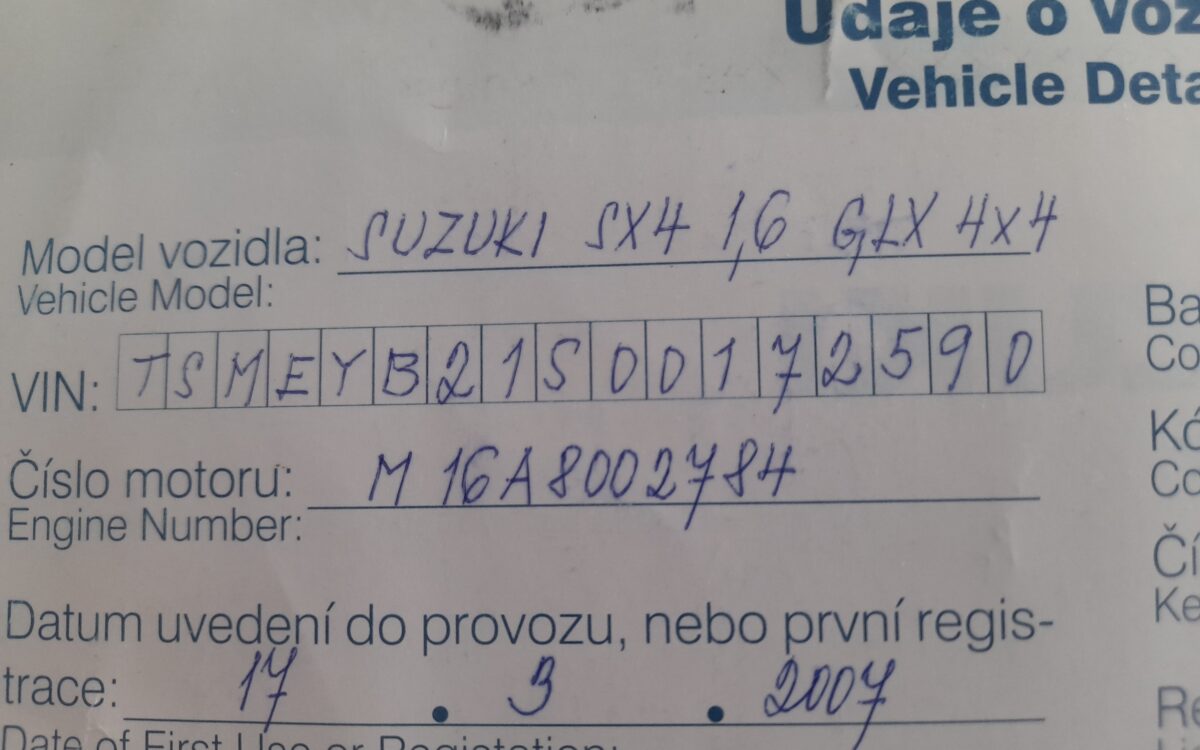 Údaje o
Vehicle
Model vozidla: SUZUKI SX4 1,6 GLX 4x4
Vehicle Model:
VIN: TSMEYB21S00172590
Číslo motoru: M16A8002784
Engine Number:
Datum uvedení do provozu, nebo první regis-
trace: 17 . 3 . 2007
Date of First Use or Registation: